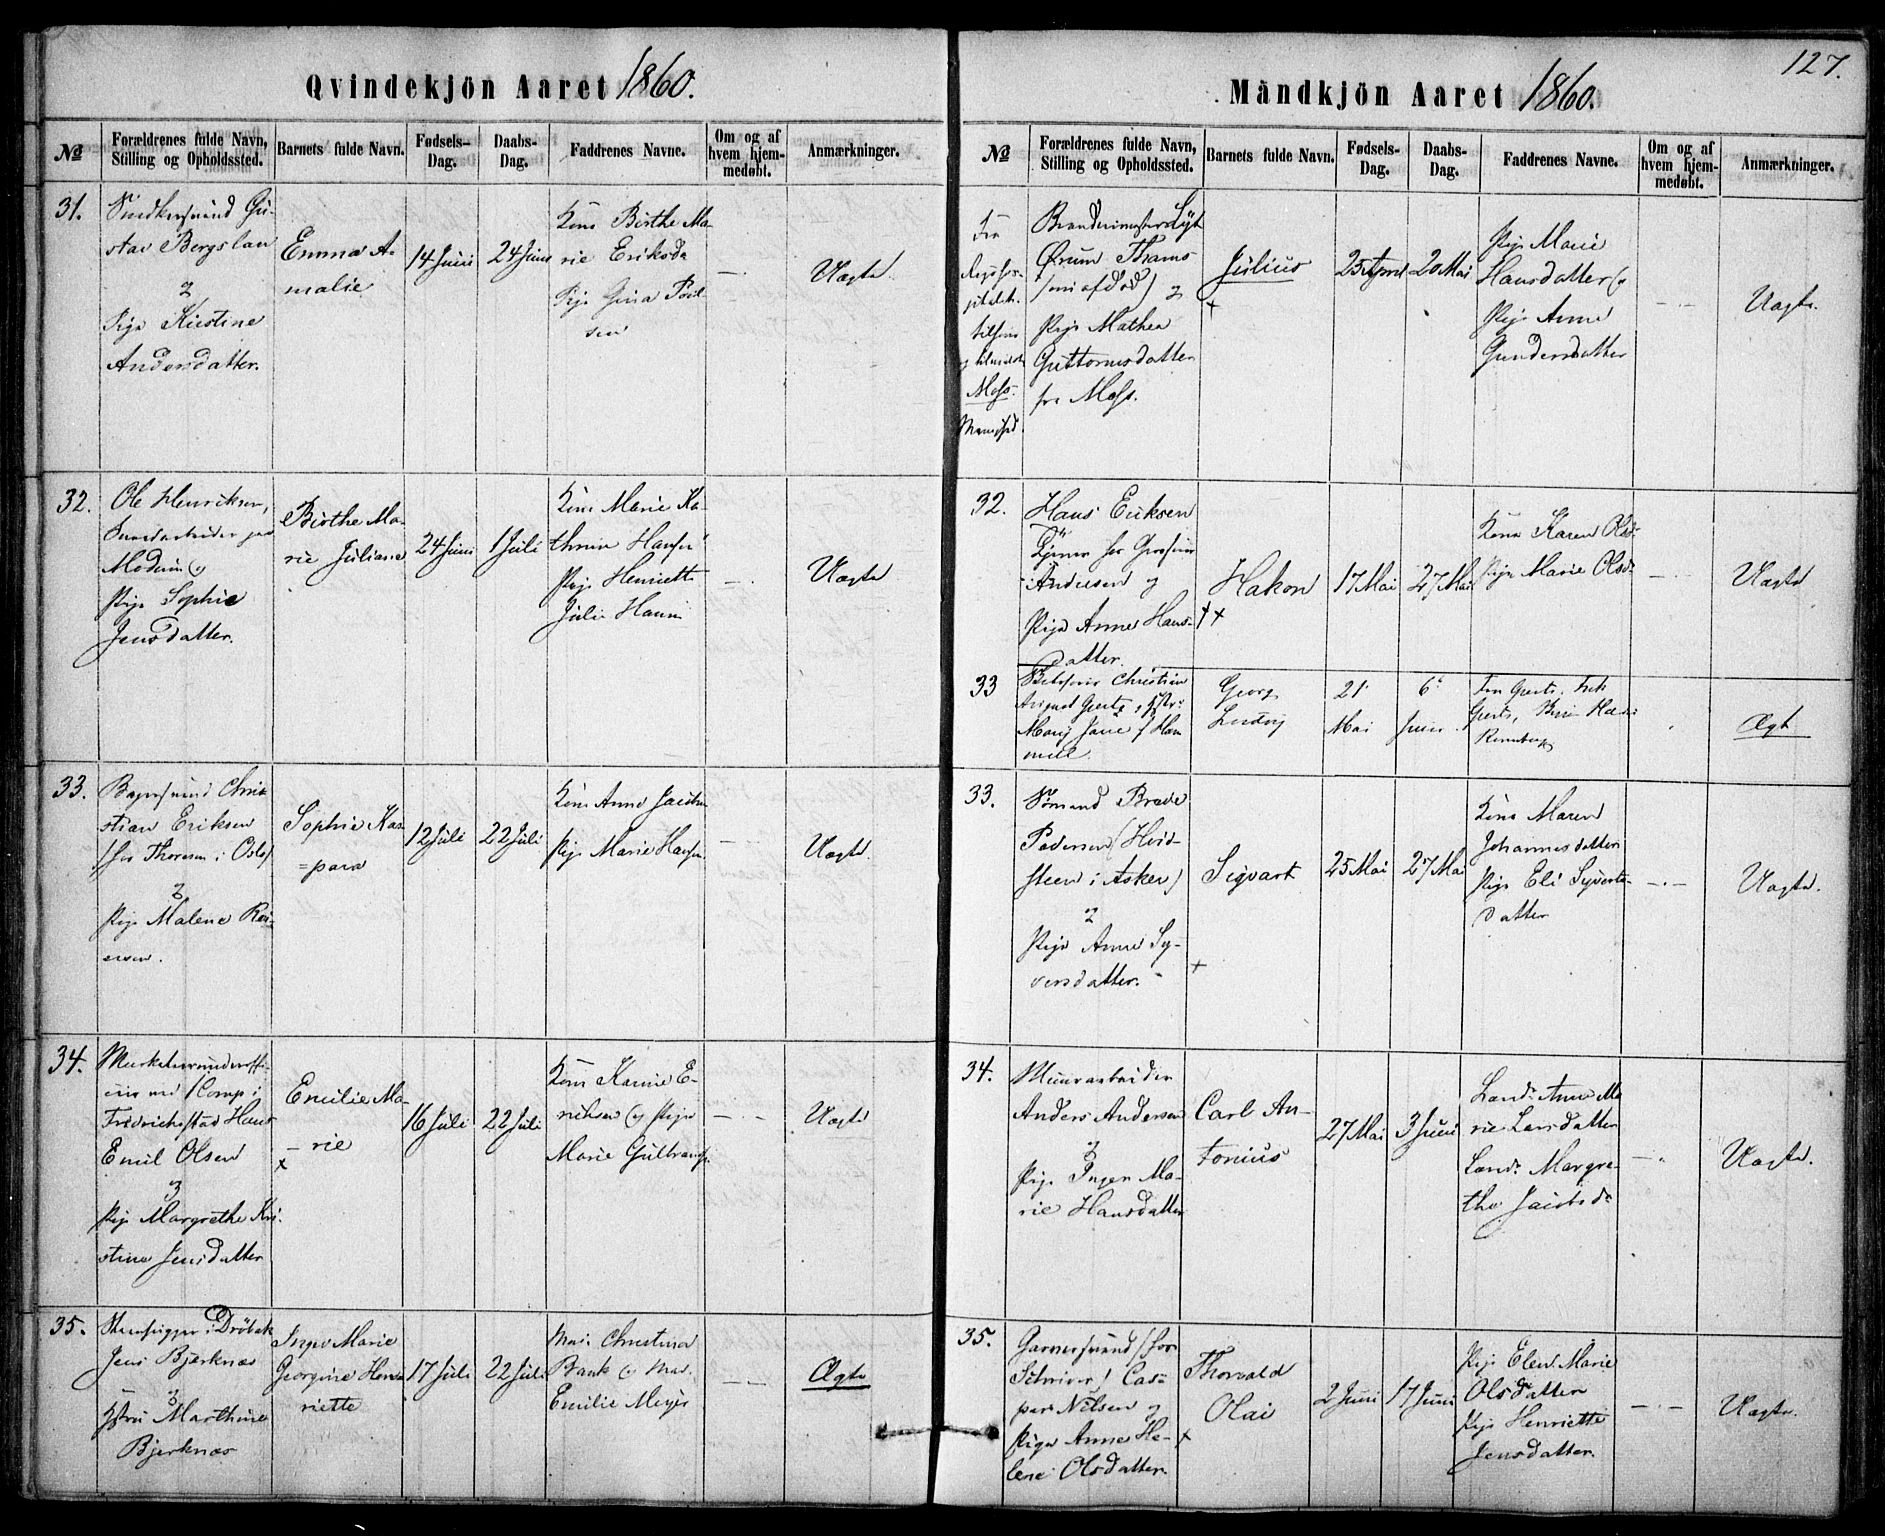 Qvindekjön Aaret 1860.
№
Forældrenes fulde Navn, Stilling og Opholdssted.
Barnets fulde Navn.
Fødsels-Dag.
Daabs-Dag.
Faddrenes Navne.
Om og af hvem hjem-medøbt.
Anmærkninger.
31.
Gu-
stav Bergslan
Pige Kirstine
Andersdatter.
Emma A-
malie
14 Juni
24 Juni
Kone Birthe Ma-
rie Eriksd
Pige Gina Poul-
sen
Uægte
32.
Ole Henriksen,
Modum og
Pige Sophie
Jensdatter.
Birthe Ma-
rie Juliane
24 Juni
1 Juli
Kone Marie Ka-
thrine Hansen
Pige Henriette
Julie Hansen
Uægte
33.
Bagersvend Chris-
tian Eriksen
(for Thoresen i Oslo)
Pige Malene Rei-
ersen.
Sophie Kas-
=para
12 Juli
22 Juli
Kone Anne Jacobsen
Pige Marie Hansen
Uægte.
34.
Musketeerunderoffi-
ceer ved 1 Comp i
Fredrichsstad Hans
Emil Olsen
Pige Margrethe Kri-
stine Jensdatter
Emilie Ma-
- rie
×
16 Juli
22 Juli
Kone Karine E-
riksen og Pige
Marie Gulbrands.
Uægte
35.
i Drøbak
Jens Bjerknæs
Hustru Marthine
Bjerknæs
Inga Marie
Georgine Hen-
riette
17 Juli
22 Juli
Mad. Christina
Bank og Mad.
Emilie Meyer
Ægte
127.
Mandkjön Aaret 1860.
№
Forældrenes fulde Navn, Stilling og Opholdssted.
Barnets fulde Navn.
Fødsels-Dag.
Daabs-Dag.
Faddrenes Navne.
Om og af hvem hjem-medøbt.
Anmærkninger.
Fra
Moss.
Ørum Thams
Pige Mathea
Guttormsdatter
fra Moss.
Julius
+
25 April
20 Mai
Pige Marie
Hansdatter og
Pige Anne
Gundersdatter
Uægte.
32.
Hans Eriksen
Andersen og
Pige Anne Hans-
datter.
Hakon
17 Mai
27 Mai
Kone Karen Olsd.
Pige Marie Olsd.
Uægte
33
Christian
August Gjerts, Hstr:
Mary Jane f. Ham
mell.
Georg
Ludvig
21
Mai
6
Juni
Ægt
33.
Sømand Brede
Pedersen (Hvid-
steen i Asker)
Pige Anne Sy-
versdatter.
Sigvart
+
25 Mai
27 Mai
Kone Maren
Johannesdatter
Pige Eli Syverts-
datter
Uægte.
34.
Muurarbeider
Anders Andersen
Pige Inger Ma-
rie Hansdatter
Carl An-
tonius
27 Mai
3 Juni
Anne Ma
rie Larsdatter
Margre-
the Jacobsd
Uægte.
35.
Garversvend (for
Schriver) Cas-
per Nilsen og
Pige Anne He-
lene Olsdatter.
Thorvald
Olai
+
2 Juni
17 Juni
Pige Elen Marie
Olsdatter
Pige Henriette
Jensdatter.
Uægte.